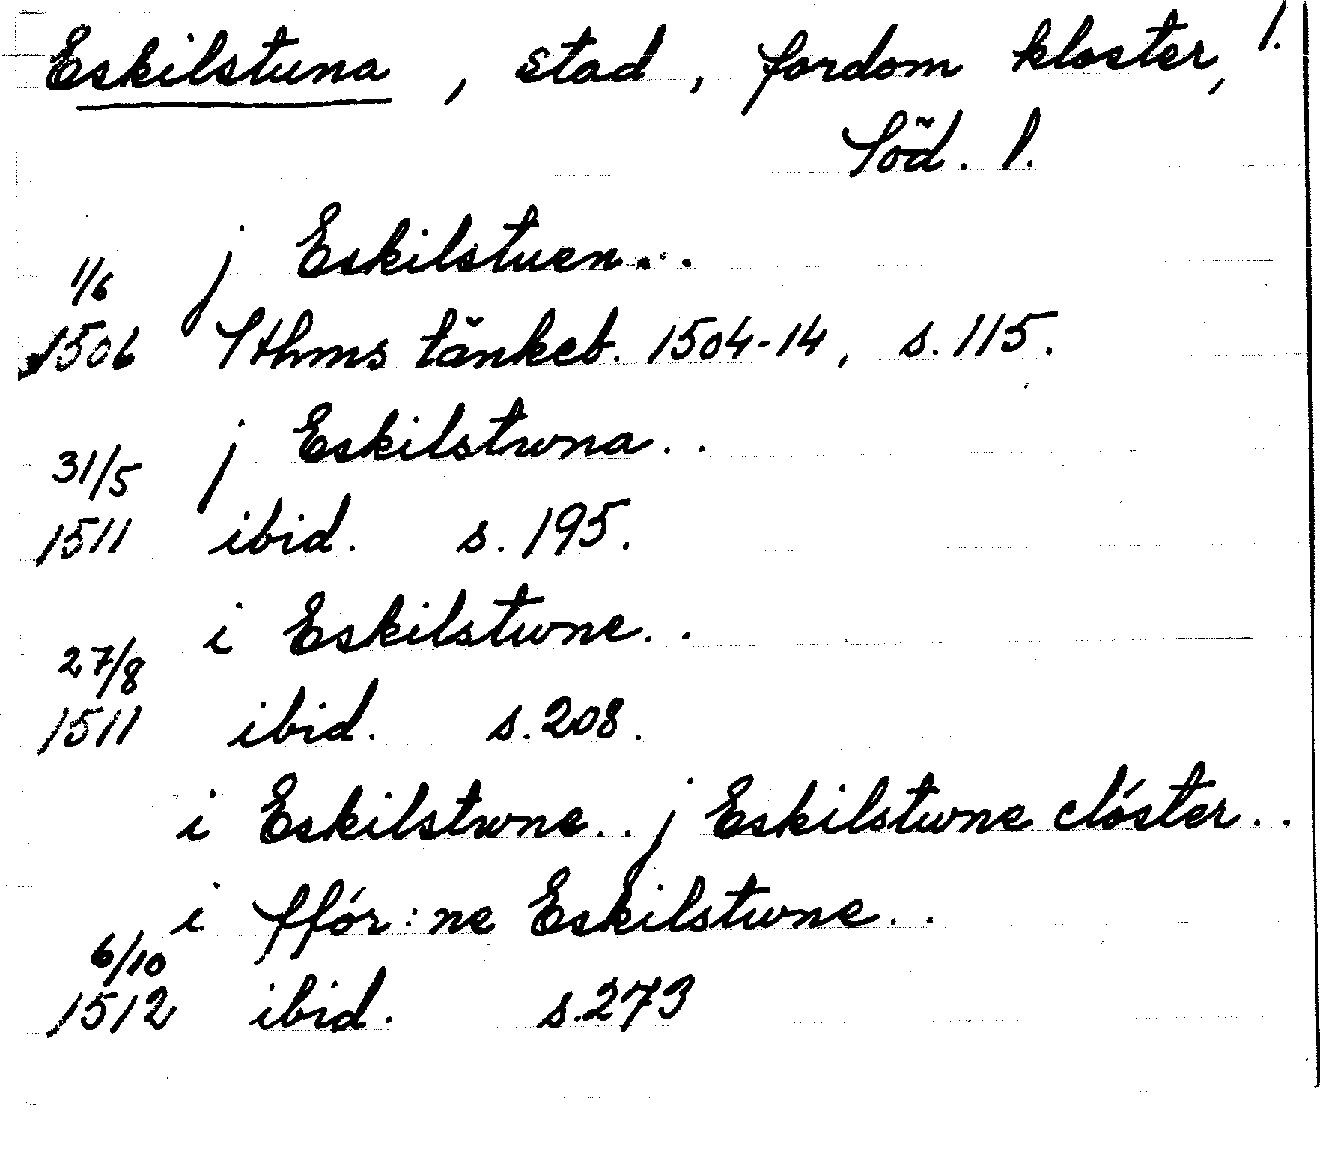 Eskilstuna, stad, fordom kloster, 1.
Söd. l.
j Eskilstuen...
1/6
1506 Sthms tänkeb. 1504-14, s. 115.
j Eskilstwna..
31/5
1511 ibid. s. 195.
i Eskilstwne..
27/8
1511 ibid. s. 208.
i Eskilstwne.. j Eskilstwne clóster..
i ffór:ne Eskilstwne..
6/10
1512 ibid. s. 273